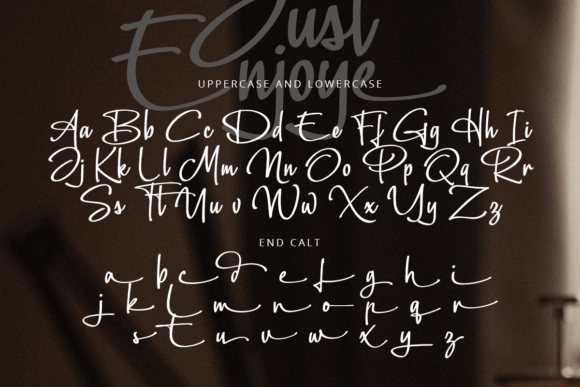 Just
Enjoye
UPPERCASE AND LOWERCASE
Aa Bb Cc Dd Ee Ff Gg Hh Ii
Jj Kk Ll Mm Nn Oo Pp Qq Rr
Ss Tt Uu v Ww Xx Yy Zz
END CALT
a b c d e f g h i
j k l m n o p q r
s t u v w x y z